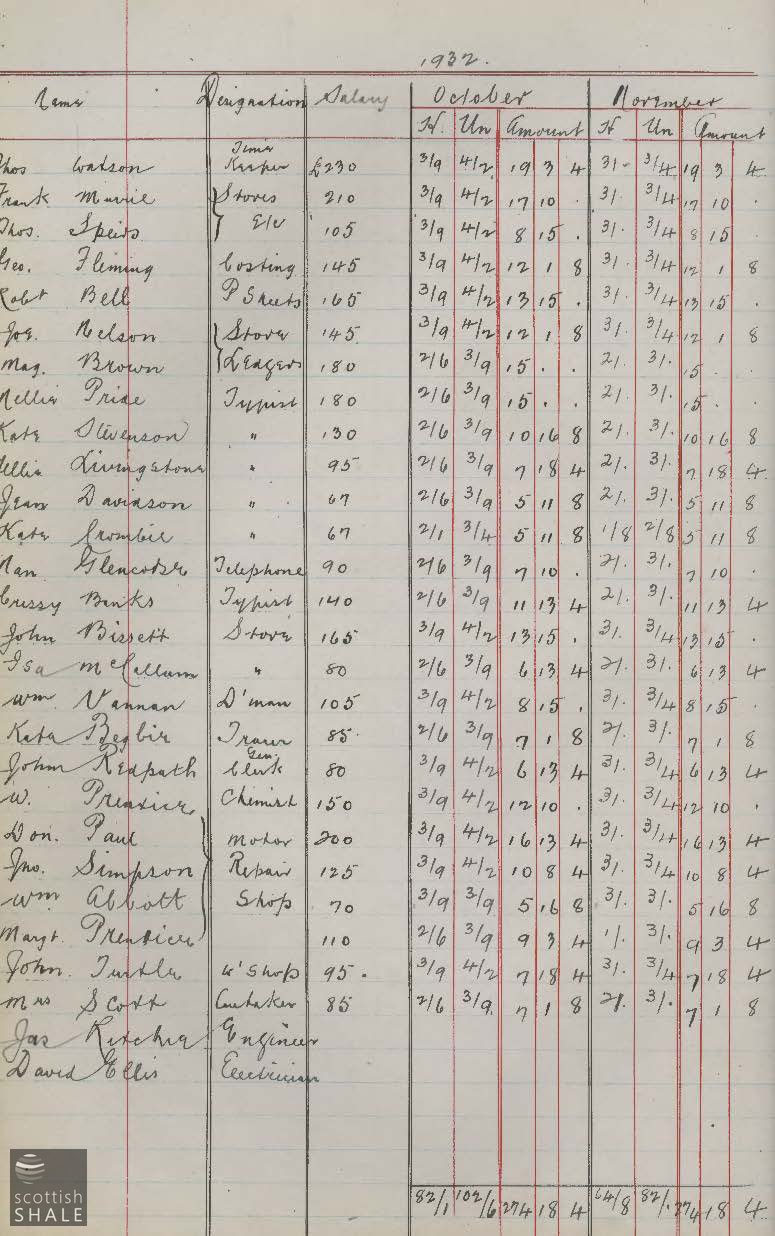 1932.
Name Designation Salary October November
H. Un Amount H Un Amount
Time
Thos Watson Keeper £230 3/9 4/2 19 3 4 3/- 3/4 19 3 4
Frank Murrie Stores 210 3/9 4/2 17 10 . 3/. 3/4 17 10 .
Thos. Speirs 105 3/9 4/2 8 15 . 3/. 3/4 8 15 .
Geo. Fleming Costing 145 3/9 4/2 12 1 8 3/. 3/4 12 1 8
Robt Bell P Sheets 165 3/9 4/2 13 15 . 3/. 3/4 13 15 .
Jos. Nelson Store 145 3/9 4/2 12 1 8 3/. 3/4 12 1 8
Mag. Brown Ledgers 180 2/6 3/9 15 . . 2/. 3/. 15 . .
Nellie Pride Typist 180 2/6 3/9 15 . . 2/. 3/. 15 . .
Kate Stevenson " 130 2/6 3/9 10 16 8 2/. 3/. 10 16 8
Nellie Livingstone " 95 2/6 3/9 7 18 4 2/. 3/. 7 18 4
Jean Davidson " 67 2/6 3/9 5 11 8 2/. 3/. 5 11 8
Kate Crombie " 67 2/1 3/4 5 11 8 1/8 2/8 5 11 8
Nan Telephone 90 2/6 3/9 7 10 . 2/. 3/. 7 10 .
Crissy Banks Typist 140 2/6 3/9 11 13 4 2/. 3/. 11 13 4
John Bissett Store 165 3/9 4/2 13 15 . 3/. 3/4 13 15 .
Isa McCallum " 80 2/6 3/9 6 13 4 2/. 3/. 6 13 4
Wm Vannan D'man 105 3/9 4/2 8 15 . 3/. 3/4 8 15 .
Kate Begbie Tracer 85 2/6 3/9 7 1 8 2/. 3/. 7 1 8
Gen
John Redpath Clerk 80 3/9 4/2 6 13 4 3/. 3/4 6 13 4
W. Prentice Chemist 150 3/9 4/2 12 10 . 3/. 3/4 12 10 .
Don. Paul Motor 200 3/9 4/2 16 13 4 3/. 3/4 16 13 4
Jno. Simpson Repair 125 3/9 4/2 10 8 4 3/. 3/4 10 8 4
Wm Abbott Shop 70 3/9 3/9 5 16 8 3/. 3/. 5 16 8
Margt. Prentice 110 2/6 3/9 9 3 4 1/. 3/. 9 3 4
John. Turtle W'Shop 95. 3/9 4/2 7 18 4 3/. 3/4 7 18 4
Mrs Scott Caretaker 85 2/6 3/9 7 1 8 2/. 3/. 7 1 8
Jas Ritchie Engineer
David Ellis Electrician
82/1 102/6 274 18 4 64/8 82/. 274 18 4
scottish
SHALE